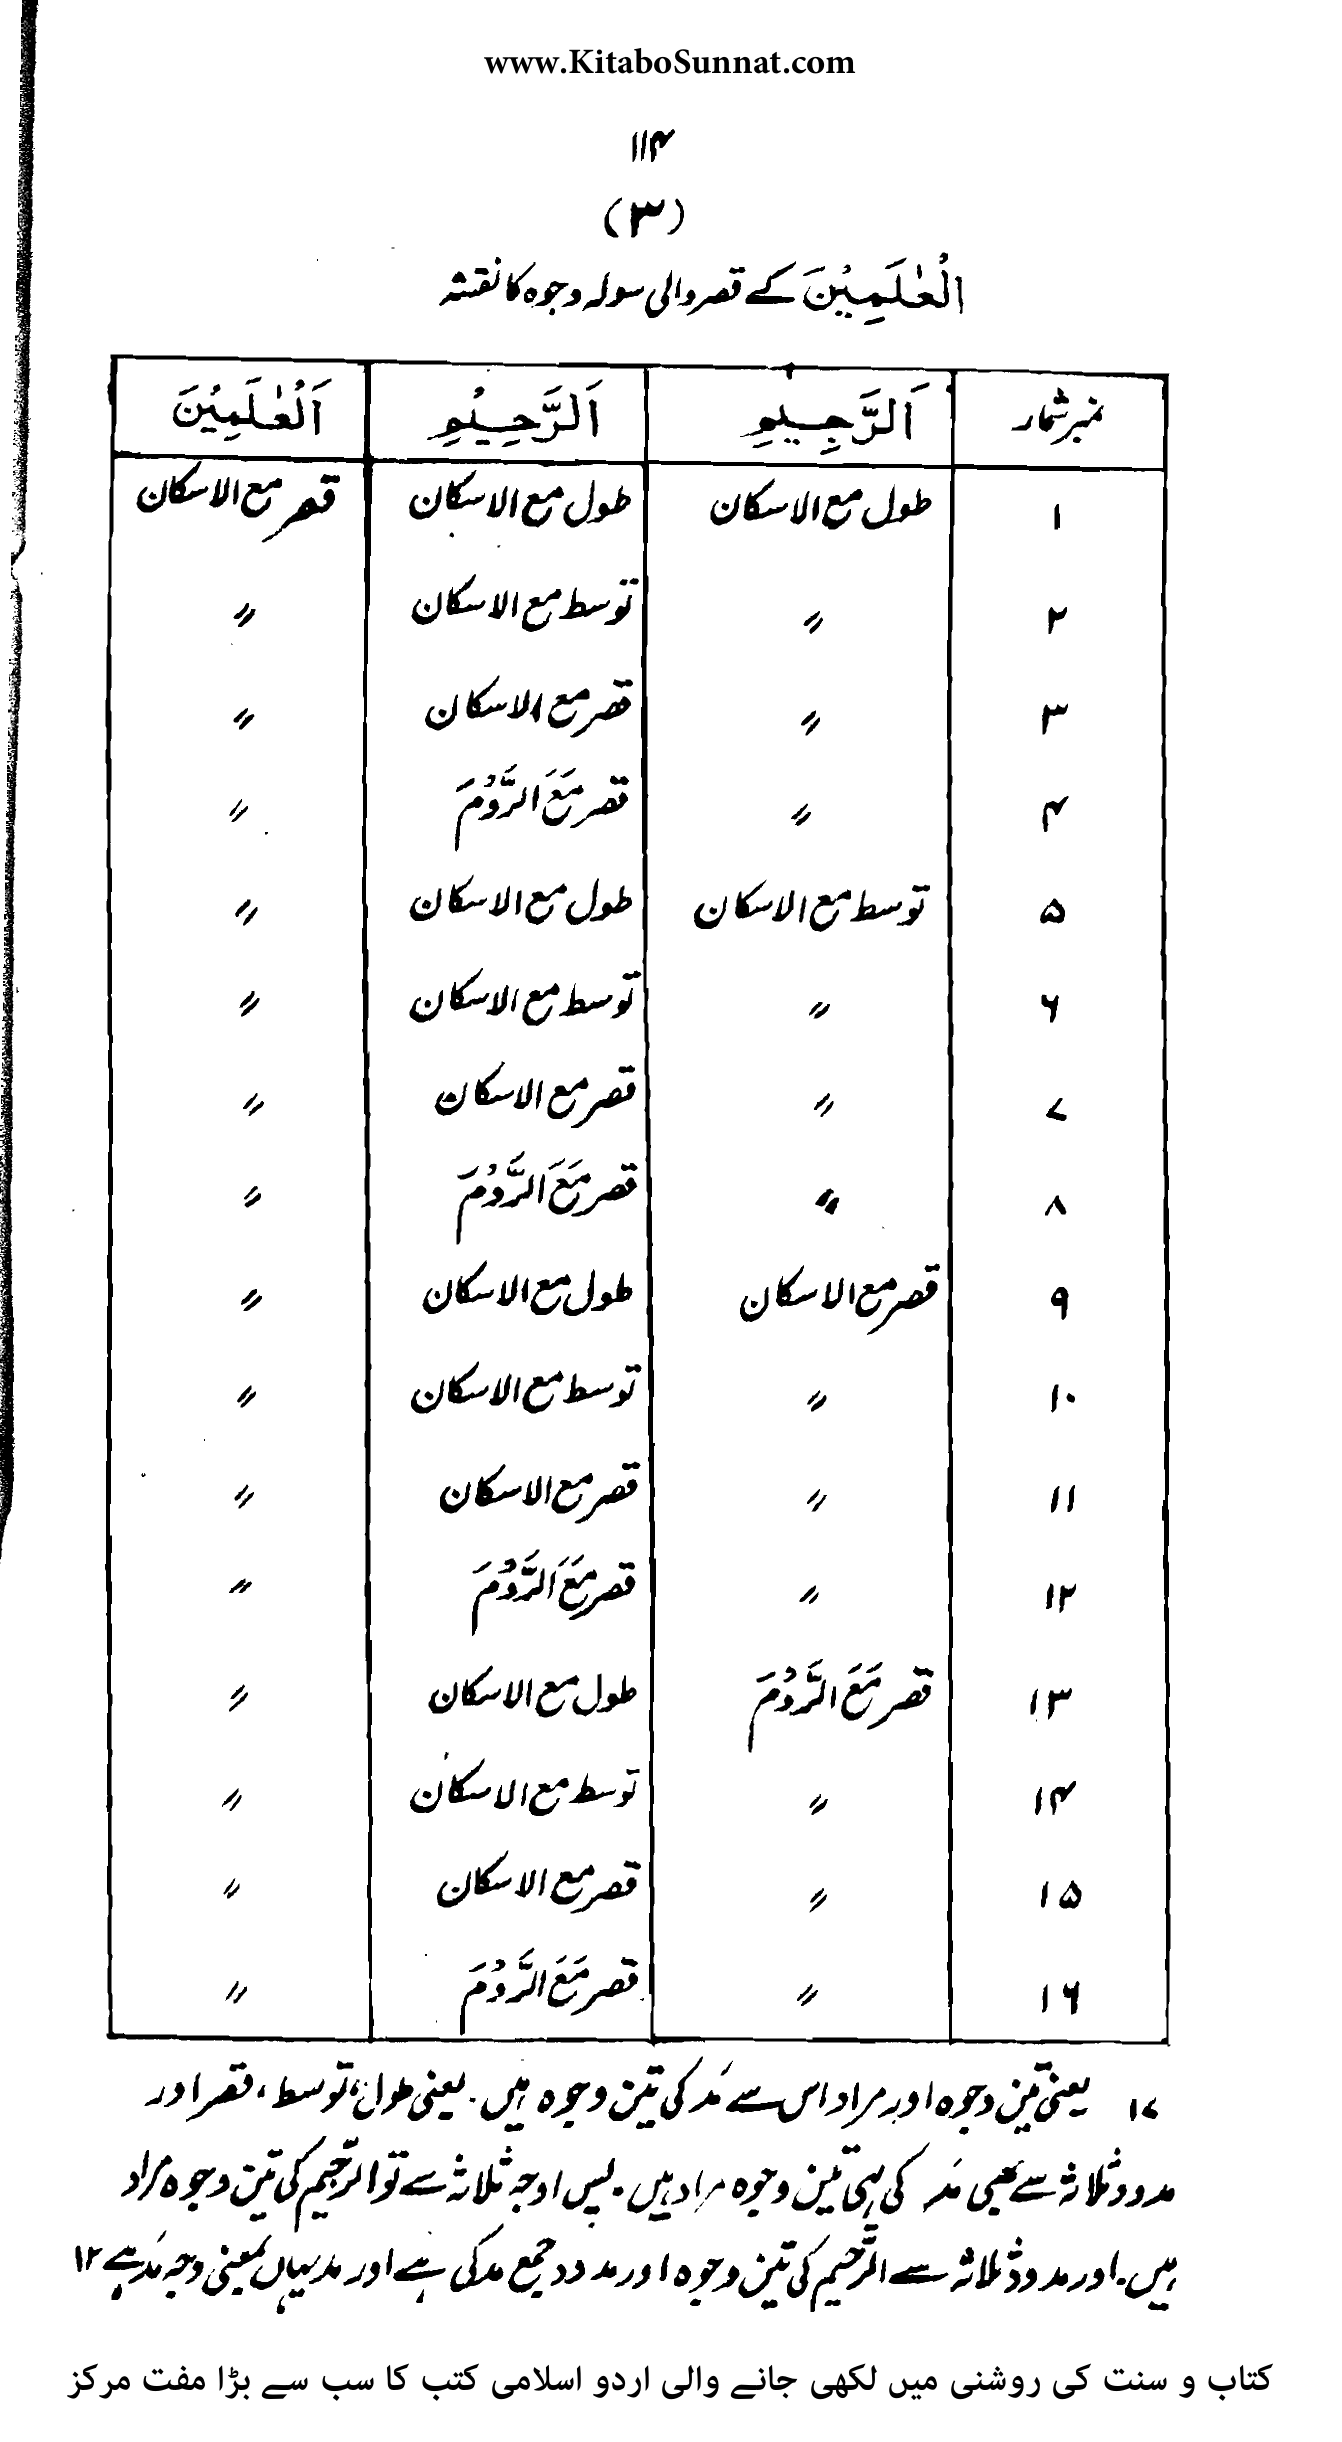 www.KitaboSunnat.com
۱۱۴
(۳)
الْعٰلَمِيْنَ کے قصر والی سولہ وجوہ کا نقشہ
نمبر شمار اَلرَّجِيمِ اَلرَّحِيْمِ اَلْعٰلَمِيْنَ
۱ طول مع الاسکان طول مع الاسکان قصر مع الاسکان
۲ 〃 توسط مع الاسکان 〃
۳ 〃 قصر مع الاسکان 〃
۴ 〃 قصر مَعَ الرَّوْمَ 〃
۵ توسط مع الاسکان طول مع الاسکان 〃
۶ 〃 توسط مع الاسکان 〃
۷ 〃 قصر مع الاسکان 〃
۸ 〃 قصر مَعَ الرَّوْمَ 〃
۹ قصر مع الاسکان طول مع الاسکان 〃
۱۰ 〃 توسط مع الاسکان 〃
۱۱ 〃 قصر مع الاسکان 〃
۱۲ 〃 قصر مَعَ الرَّوْمَ 〃
۱۳ قصر مَعَ الرَّوْمَ طول مع الاسکان 〃
۱۴ 〃 توسط مع الاسکان 〃
۱۵ 〃 قصر مع الاسکان 〃
۱۶ 〃 قصر مَعَ الرَّوْمَ 〃
۱۷ یعنی تین وجوہ اور مراد اس سے مَد کی تین وجوہ ہیں۔ یعنی طول، توسط، قصر اور
مدود ثلاثہ سے بھی مَد کی ہی تین وجوہ مراد ہیں۔ پس اوجہ ثلاثہ سے تو الرّجیم کی تین وجوہ مراد
ہیں۔ اور مدود ثلاثہ سے الرَّحیم کی تین وجوہ اور مدود جمع مد کی ہے اور مد یہاں بمعنی وجہ مَد ہے ۱۲
کتاب و سنت کی روشنی میں لکھی جانے والی اردو اسلامی کتب کا سب سے بڑا مفت مرکز